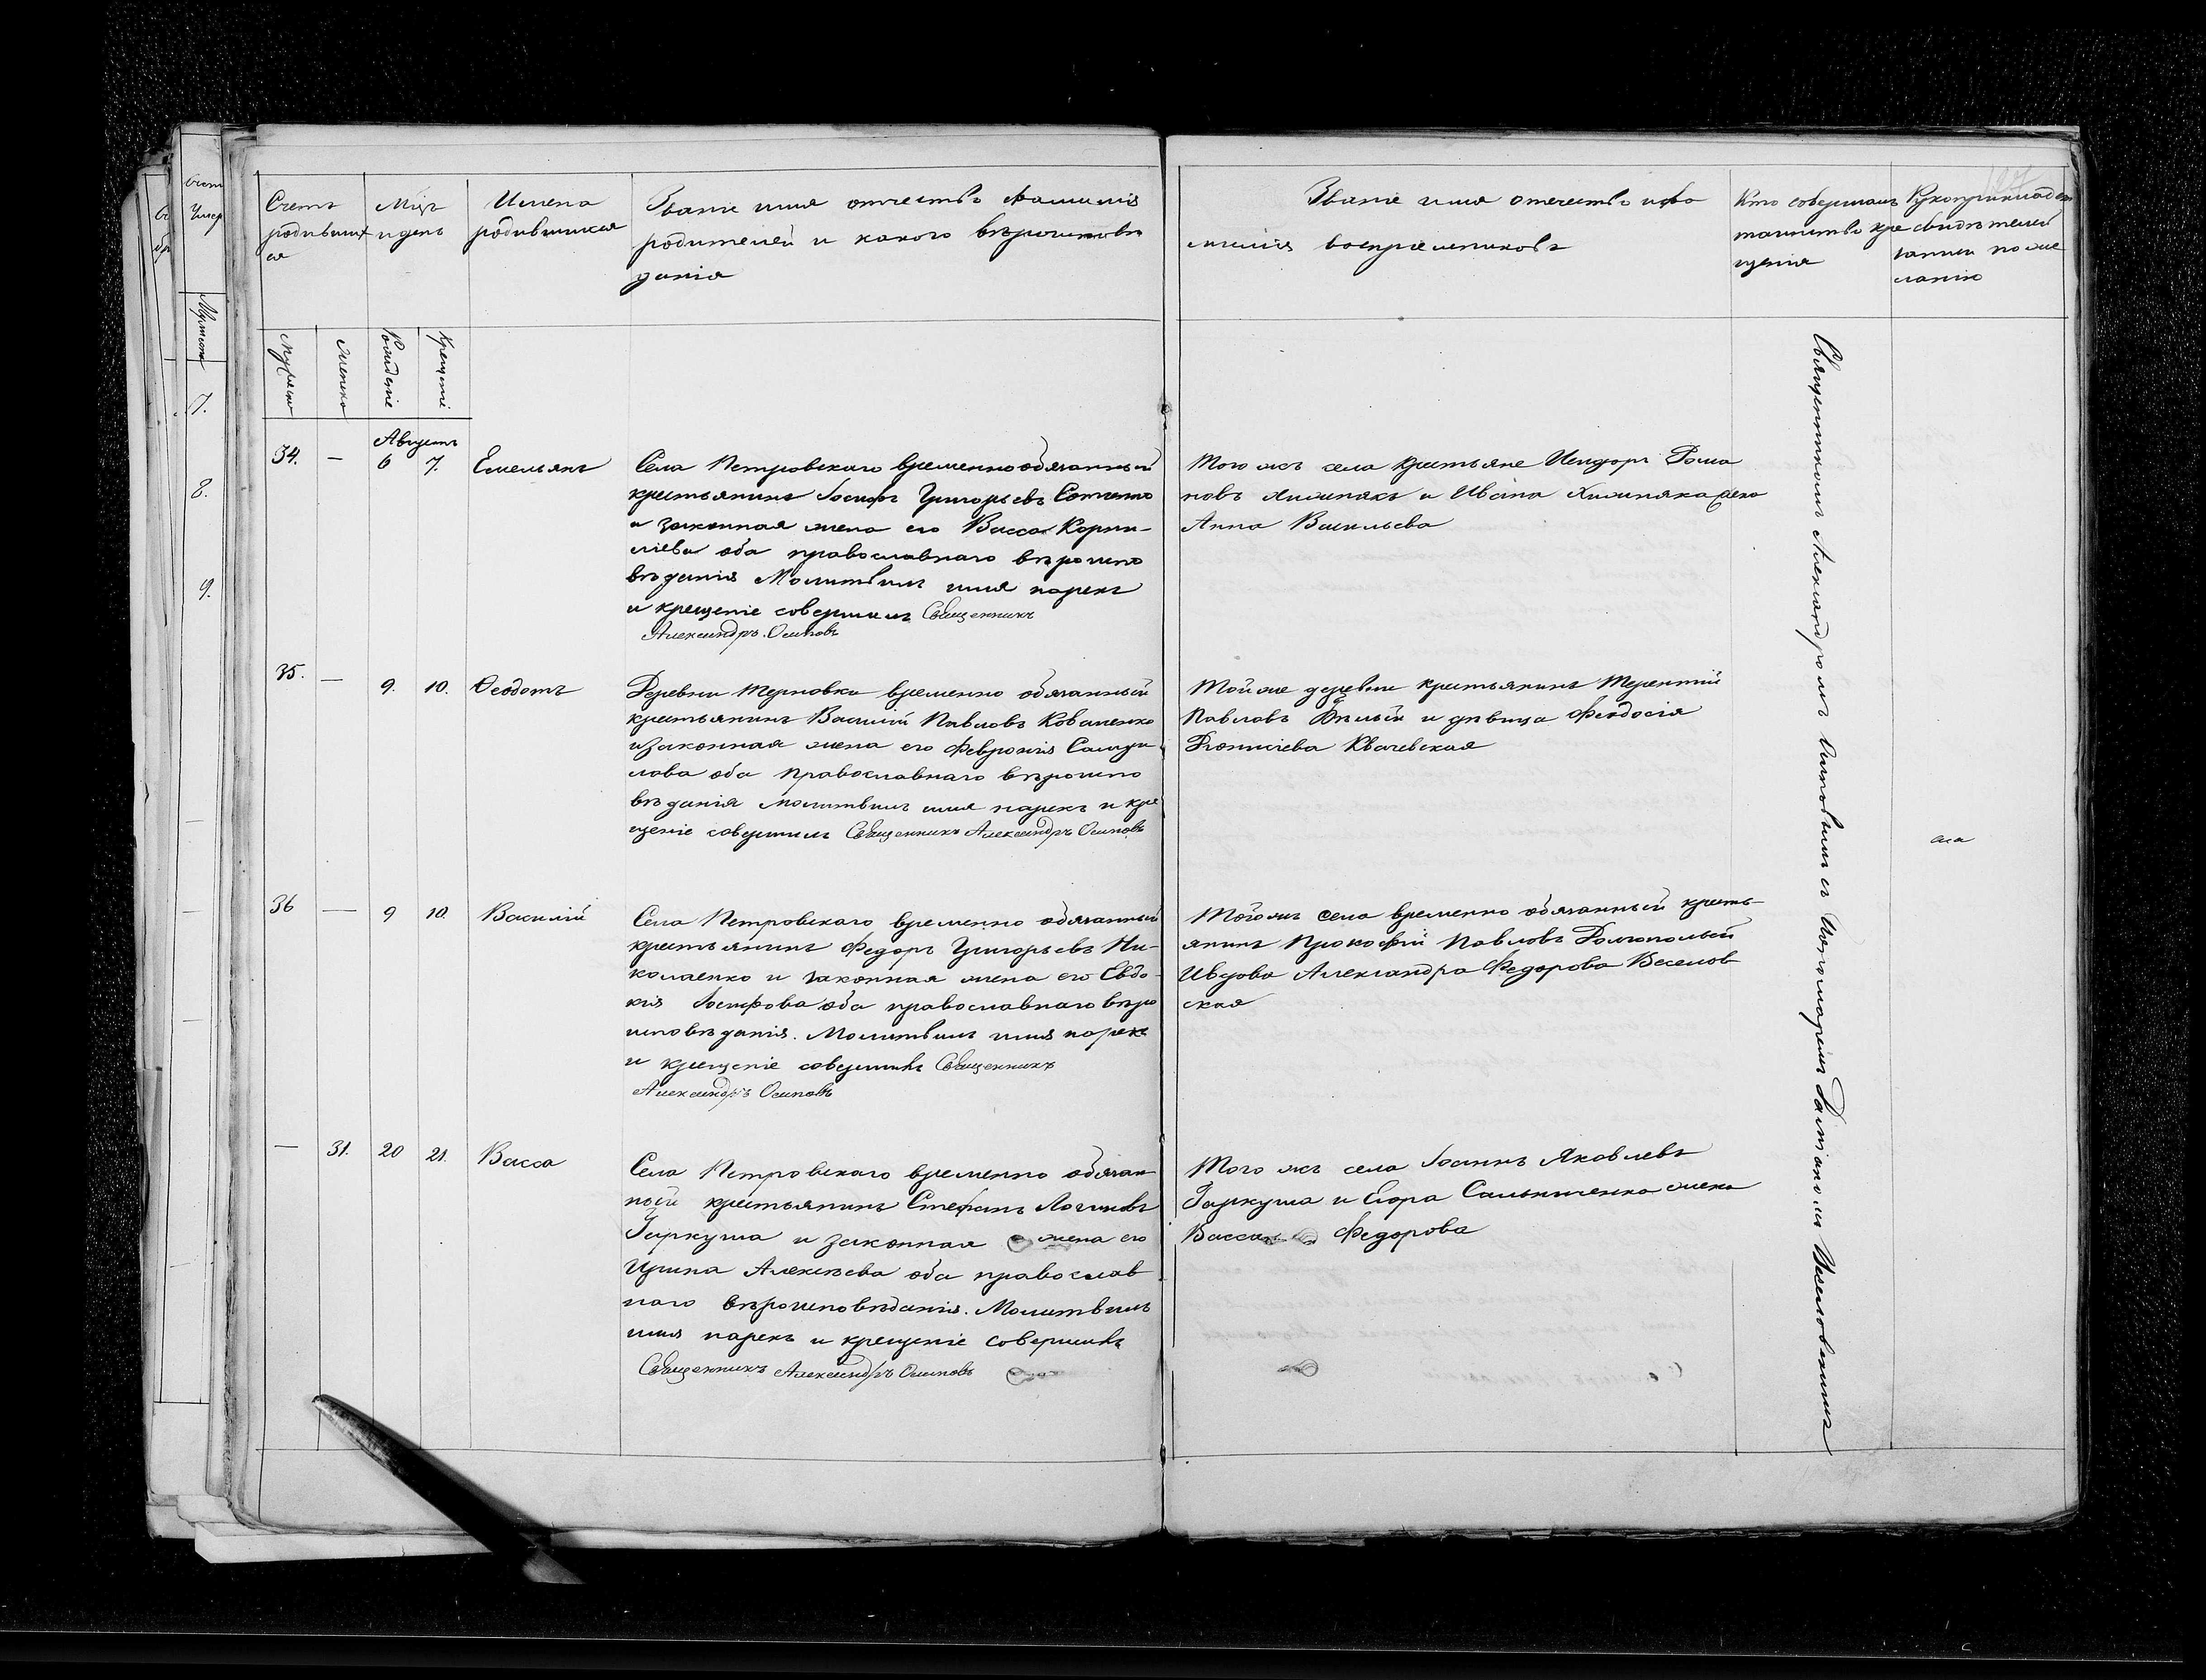 Счетъ родившихся
Мѣцъ и день
Имена родившихся
Званіе имя отчество фамилія
родителей и какого вѣроисповѣ
данія
Званіе имя отечество и фа
милія воспріемниковъ
Кто совершалъ
таинство кре
щенія
Рукоприкладст
свидѣтелей
записи по же
ланію
Мужеска
Женска
Рожденіе
Крещеніе
Августъ
34. — 6 7. Емельянъ
Села Петровскаго временно обязанный
крестьянинъ Іосифъ Григорьевъ Сотченко
и законная жена его Васса Корни-
ліева оба православнаго вѣроиспо
вѣданія Молитвилъ имя нарекъ
и крещеніе совершилъ Священникъ
Александръ Осиповъ
Того жъ села крестьяне Исидоръ Рома
новъ Хижнякъ и Ивана Хижняка жена
Анна Васильева
35. — 9. 10. Ѳеодотъ
Деревни Терновки временно обязанный
крестьянинъ Василій Павловъ Коваленко
и законная жена его Февронія Самуи
лова оба православнаго вѣроиспо
вѣданія молитвилъ имя нарекъ и кре
щеніе совершилъ Священникъ Александръ Осиповъ
Той же деревни крестьянинъ Терентій
Павловъ Бѣлый и дѣвица Феодосія
Діонисіева Квачевская
36 — 9 10. Василій
Села Петровскаго временно обязанный
крестьянинъ Федоръ Григорьевъ Ни-
колаенко и законная жена его Евдо-
кія Іосифова оба православнаго вѣро
исповѣданія. Молитвилъ имя нарекъ
и крещеніе совершилъ Священникъ
Александръ Осиповъ
Того жъ села временно обязанный кресть-
янинъ Прокофій Павловъ Долгополый
и вдова Александра Федорова Веселов
ская
— 31. 20 21. Васса
Села Петровскаго временно обязан
ный крестьянинъ Стефанъ Логиновъ
Гаркуша и законная жена его
Ирина Алексѣева оба православ
наго вѣроисповѣданія. Молитвилъ
имя нарекъ и крещеніе совершилъ
Священникъ Александръ Осиповъ
Того жъ села Іоаннъ Яковлевъ
Гаркуша и Сальниченка жена
Васса Федорова
Священникомъ Александромъ Осиповымъ съ Пономаремъ Даміаномъ
7.
8.
9.